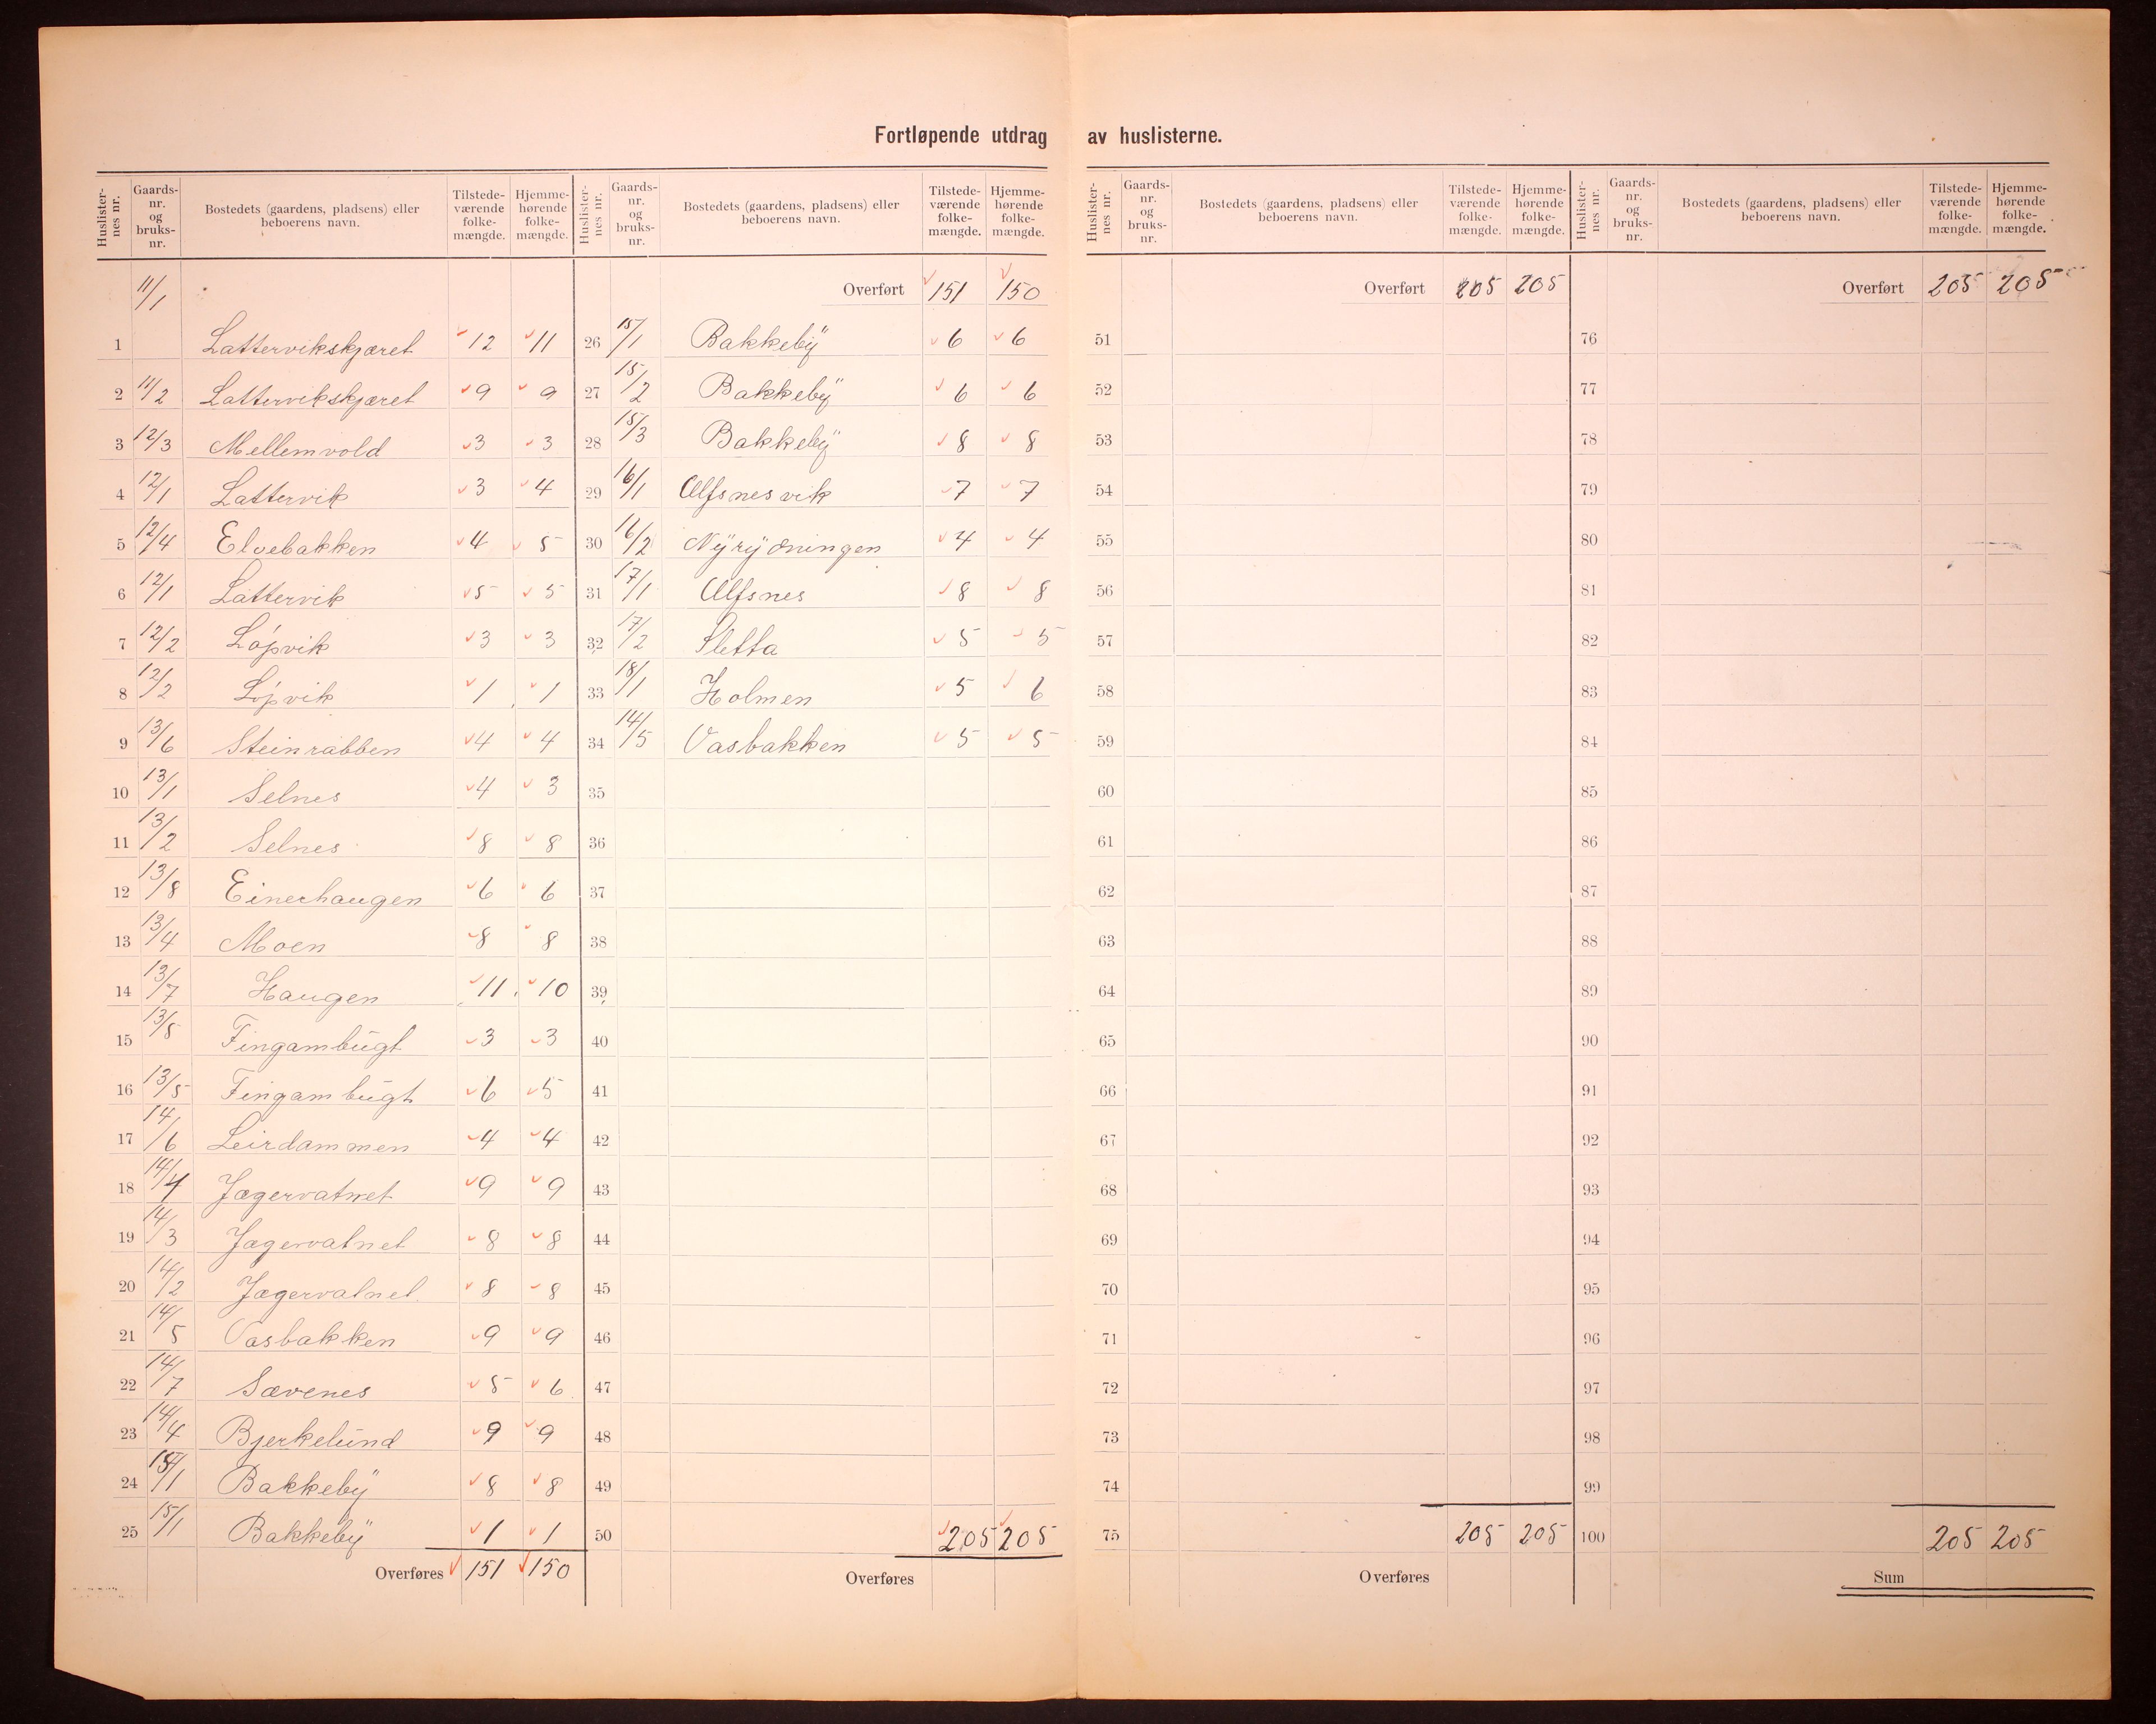 Fortløpende utdrag av huslisterne.
Huslisternes nr. Gaards-nr. og bruks-nr. Bostedets (gaardens, pladsens) eller beboerens navn. Tilstede-værende folke-mængde. Hjemme-hørende folke-mængde.
11/1
1 Lattervikskjæret 12 11
2 11/2 Lattervikskjæret 9 9
3 12/3 Mellemvold 3 3
4 12/1 Lattervik 3 4
5 12/4 Elvebakken 4 5
6 12/1 Lattervik 5 5
7 12/2 Lópvik 3 3
8 12/2 Lópvik 1 1
9 13/6 Steinrabben 4 4
10 13/1 Selnes 4 3
11 13/2 Selnes 8 8
12 13/8 Einerhaugen 6 6
13 13/4 Moen 8 8
14 13/7 Haugen 11 10
15 13/5 Fingambugt 3 3
16 13/5 Fingambugt 6 5
17 14/6 Leirdammen 4 4
18 14/4 Jægervatnet 9 9
19 14/3 Jægervatnet 8 8
20 14/2 Jægervatnet 8 8
21 14/5 Vasbakken 9 9
22 14/7 Sævenes 5 6
23 14/4 Bjerkelund 9 9
24 15/1 Bakkebÿ 8 8
25 15/1 Bakkebÿ 1 1
Overføres 151 150
Huslisternes nr. Gaards-nr. og bruks-nr. Bostedets (gaardens, pladsens) eller beboerens navn. Tilstede-værende folke-mængde. Hjemme-hørende folke-mængde.
Overført 151 150
26 15/1 Bakkebÿ 6 6
27 15/2 Bakkebÿ 6 6
28 15/3 Bakkebÿ 8 8
29 16/1 Ulfsnesvik 7 7
30 16/2 Nÿrÿdningen 4 4
31 17/1 Ulfsnes 8 8
32 17/2 Sletta 5 5
33 18/1 Holmen 5 6
34 14/5 Vasbakken 5 5
35
36
37
38
39
40
41
42
43
44
45
46
47
48
49
50 205 205
Overføres
Huslisternes nr. Gaards-nr. og bruks-nr. Bostedets (gaardens, pladsens) eller beboerens navn. Tilstede-værende folke-mængde. Hjemme-hørende folke-mængde.
Overført 205 205
51
52
53
54
55
56
57
58
59
60
61
62
63
64
65
66
67
68
69
70
71
72
73
74
75 205 205
Overføres
Huslisternes nr. Gaards-nr. og bruks-nr. Bostedets (gaardens, pladsens) eller beboerens navn. Tilstede-værende folke-mængde. Hjemme-hørende folke-mængde.
Overført 205 205
76
77
78
79
80
81
82
83
84
85
86
87
88
89
90
91
92
93
94
95
96
97
98
99
100 205 205
Sum